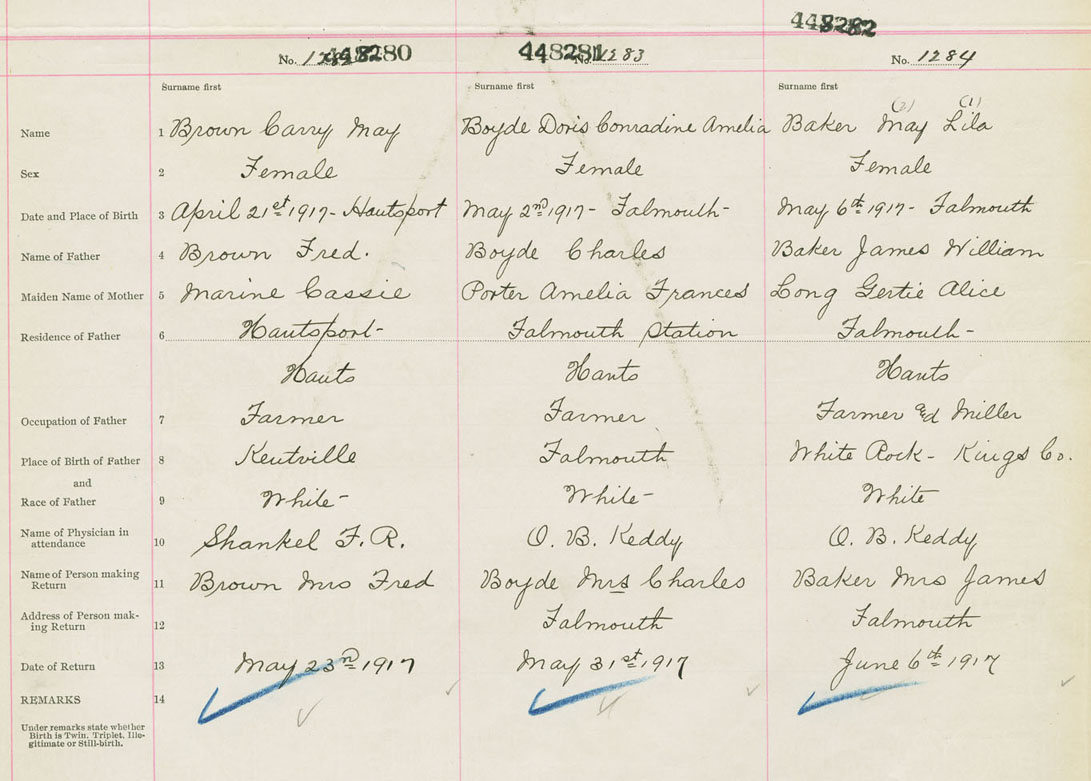 448282
No. 448280
448281 No. 1283
No. 1284
Surname first Surname first Surname first
(2) (1)
Name 1 Brown Carry May Boyde Doris Conradine Amelia Baker May Lila
Sex 2 Female Female Female
Date and Place of Birth 3 April 21st 1917- Hantsport May 2nd 1917- Falmouth- May 6th 1917- Falmouth
Name of Father 4 Brown Fred. Boyde Charles Baker James William
Maiden Name of Mother 5 Marine Cassie Porter Amelia Frances Long Gertie Alice
Residence of Father 6 Hantsport- Falmouth Station Falmouth-
Hants Hants Hants
Occupation of Father 7 Farmer Farmer Farmer &d Miller
Place of Birth of Father 8 Kentville Falmouth White Rock- Kings Co.
and
Race of Father 9 White- White- White
Name of Physician in
attendance 10 Shankel F. R. O. B. Keddy O. B. Keddy
Name of Person making
Return 11 Brown Mrs Fred Boyde Mrs Charles Baker Mrs James
Address of Person mak-
ing Return 12 Falmouth Falmouth
Date of Return 13 May 23rd 1917 May 31st 1917 June 6th 1917
REMARKS 14
Under remarks state whether
Birth is Twin, Triplet, Ille-
gitimate or Still-birth.